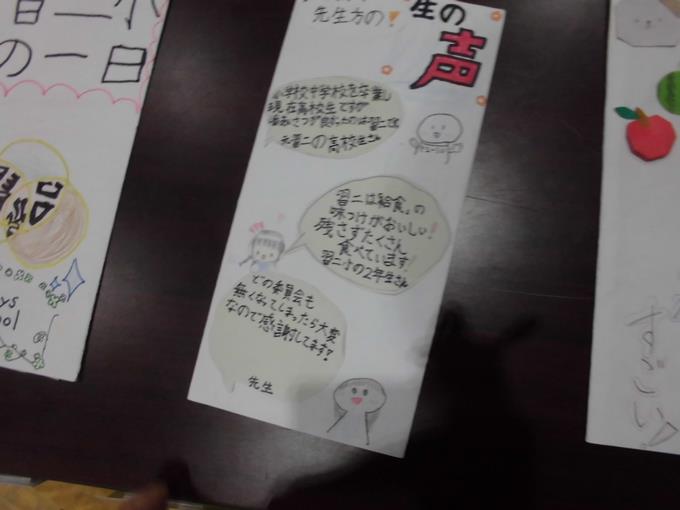 習二小
の一日
先生方の!
生の
声
小学校中学校を卒業し
現在高校生ですが
元習二の高校生さん
習二は給食の
味つけがおいしい!
残さずたくさん
食べています!
習二小の2年生さん
どの委員会も
無くなってしまったら大変
なので感謝してます!
先生